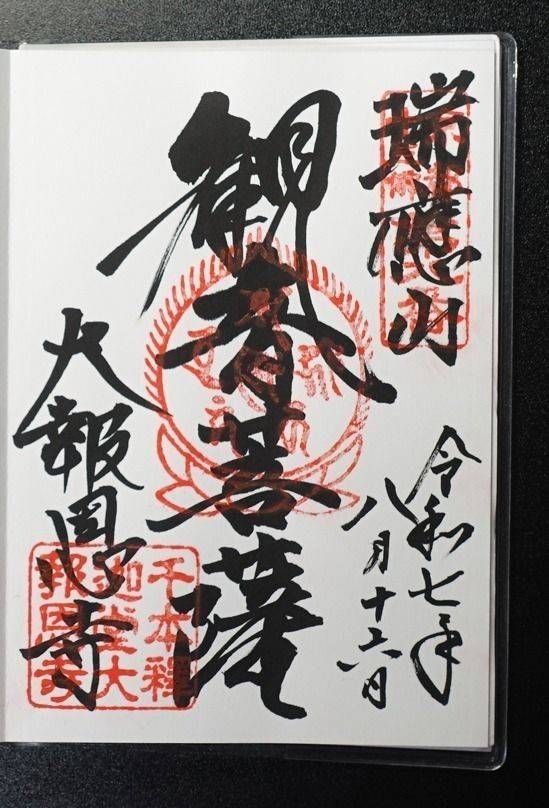 瑞應山
令和七年
八月十六日
観音菩薩
大報恩寺
千本釋
迦堂大
報恩寺